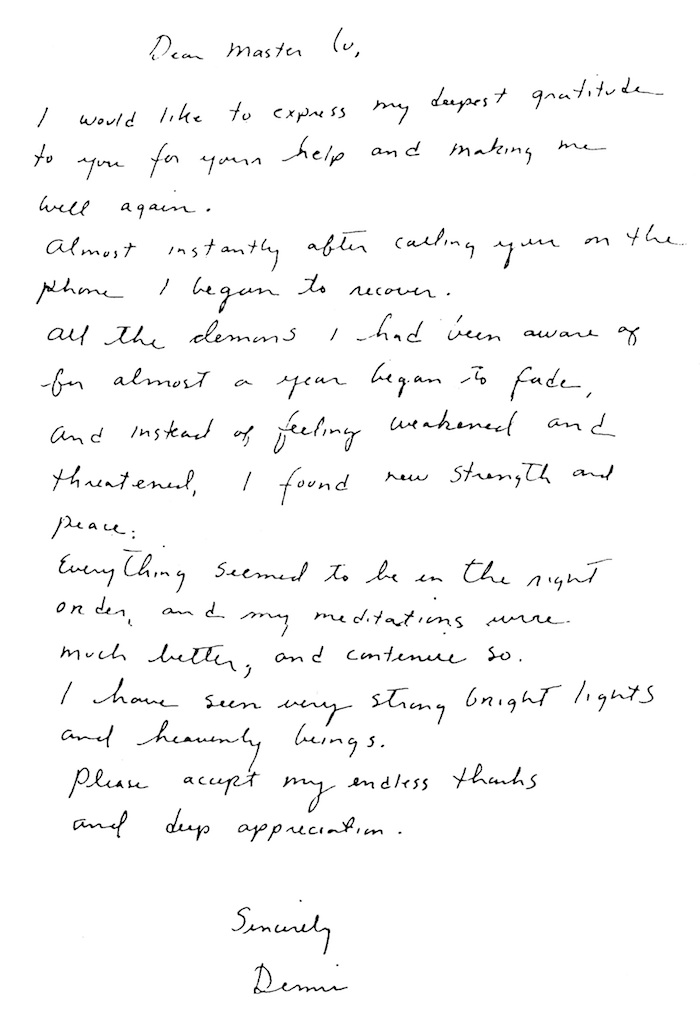 Dear Master Lu,
I would like to express my deepest gratitude
to you for your help and making me
well again.
Almost instantly after calling you on the
phone I began to recover.
All the demons I had been aware of
for almost a year began to fade,
and instead of feeling weakened and
threatened, I found new strength and
peace.
Everything seemed to be in the right
order, and my meditations were
much better, and continue so.
I have seen very strong bright lights
and heavenly beings.
Please accept my endless thanks
and deep appreciation.
Sincerely